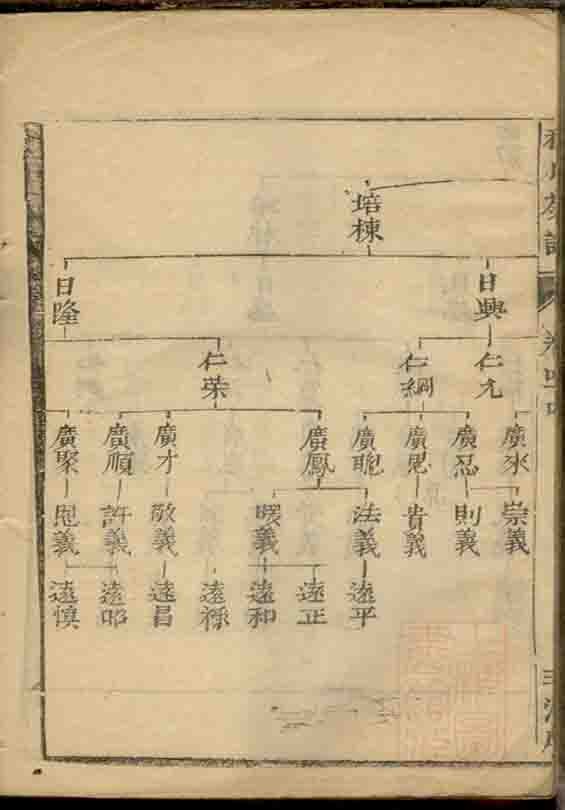 培棟
日興
日隆
仁允
仁綱
仁榮
廣來
廣忍
廣思
廣聰
廣鳳
廣才
廣順
廣聚
崇義
則義
貴義
法義
暖義
敬義
許義
恩義
遠平
遠正
遠和
遠祿
遠昌
遠昭
遠慎